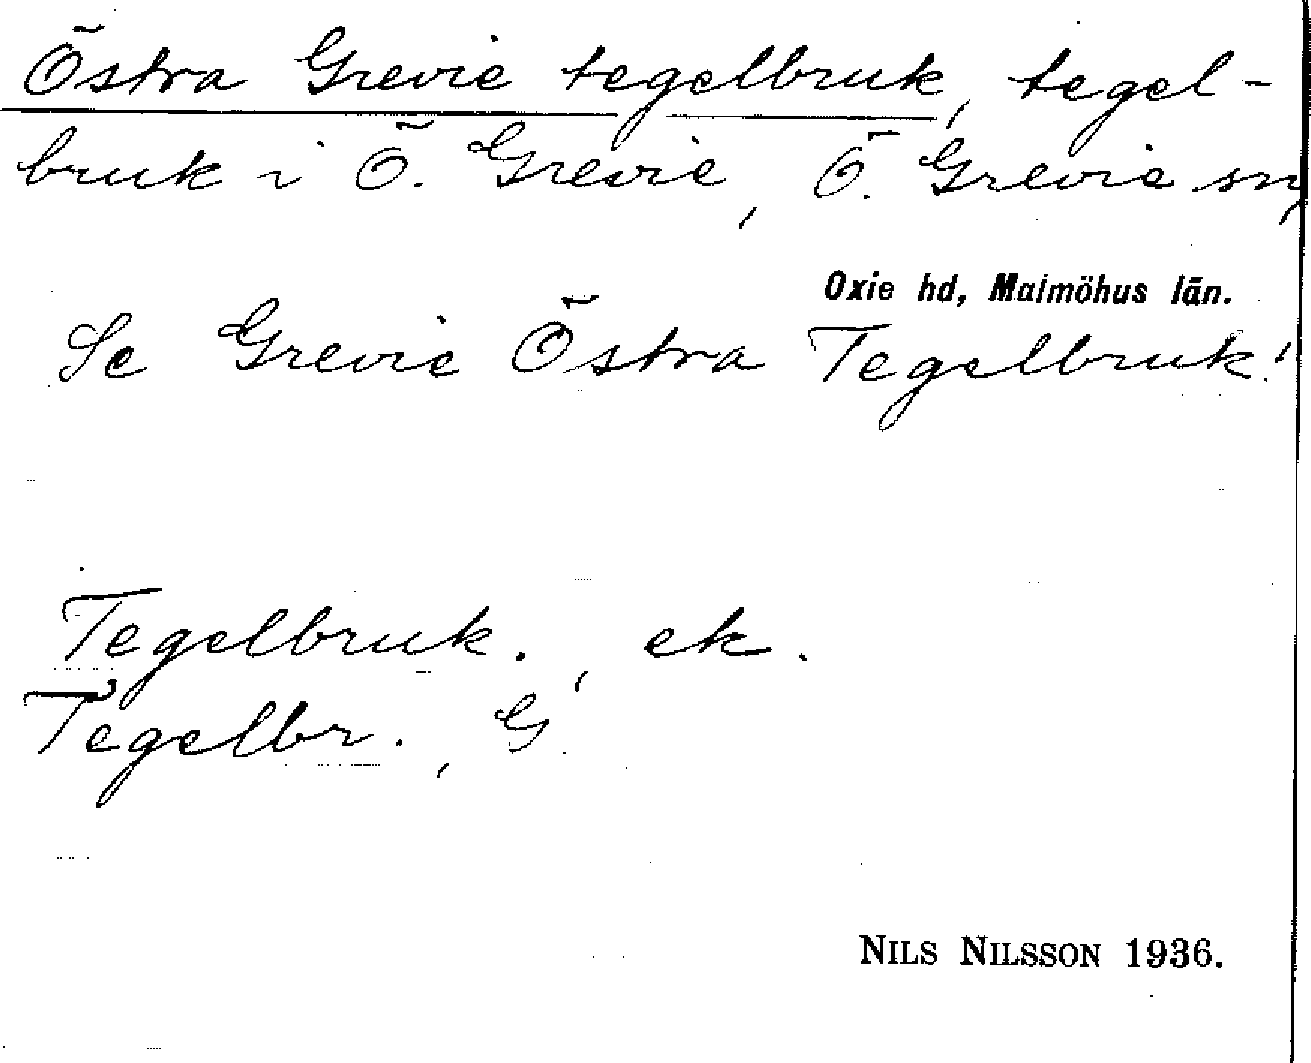 Östra Grevie tegelbruk, tegel-
bruk i Ö. Grevie, Ö. Grevie sn,
Oxie hd, Malmöhus län.
Se Grevie Östra Tegelbruk!
Tegelbruk., ek.
Tegelbr., G
NILS NILSSON 1936.